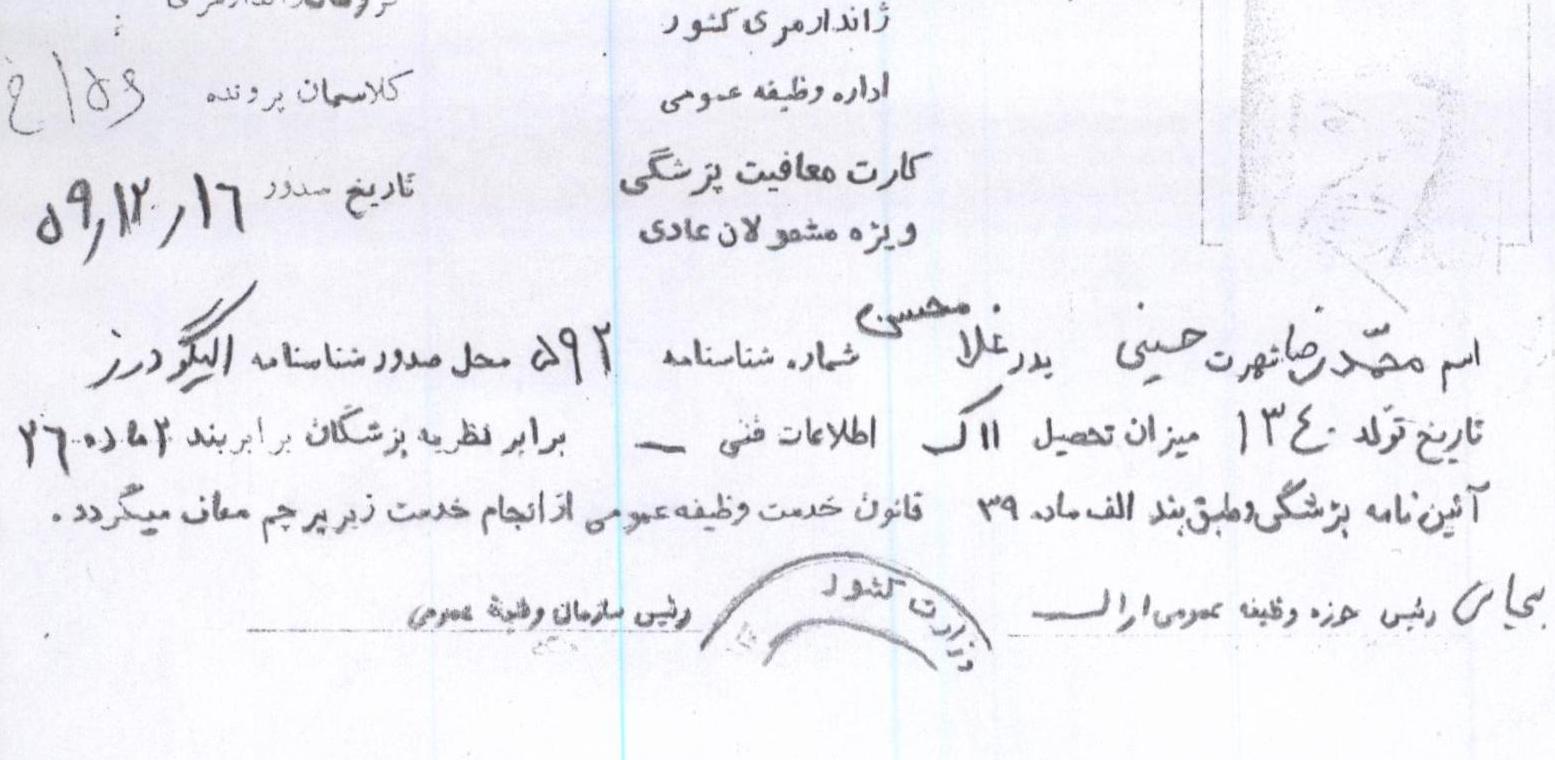 ژاندارمری کشور
اداره وظیفه عمومی
کلاسمان پرونده
کارت معافیت پزشگی
ویژه مشمولان عادی
تاریخ صدور ۵۹٫۱۲٫۱۶
اسم محمّدرضا شهرت حسینی پدر غلامحسین شماره شناسنامه ۵۹۲ محل صدور شناسنامه الیگودرز
تاریخ تولد ۱۳۴۰ میزان تحصیل ۱۱ک اطلاعات فنی ــ برابر نظریه پزشگان برابر بند ۲ ماده ۲۶
آئین نامه پزشگی وطبق بند الف ماده ۳۹ قانون خدمت وظیفه عمومی از انجام خدمت زیر پرچم معاف میگردد.
رئیس حوزه وظیفه عمومی اراک
وزارت کشور
رئیس سازمان وظیفهٔ عمومی